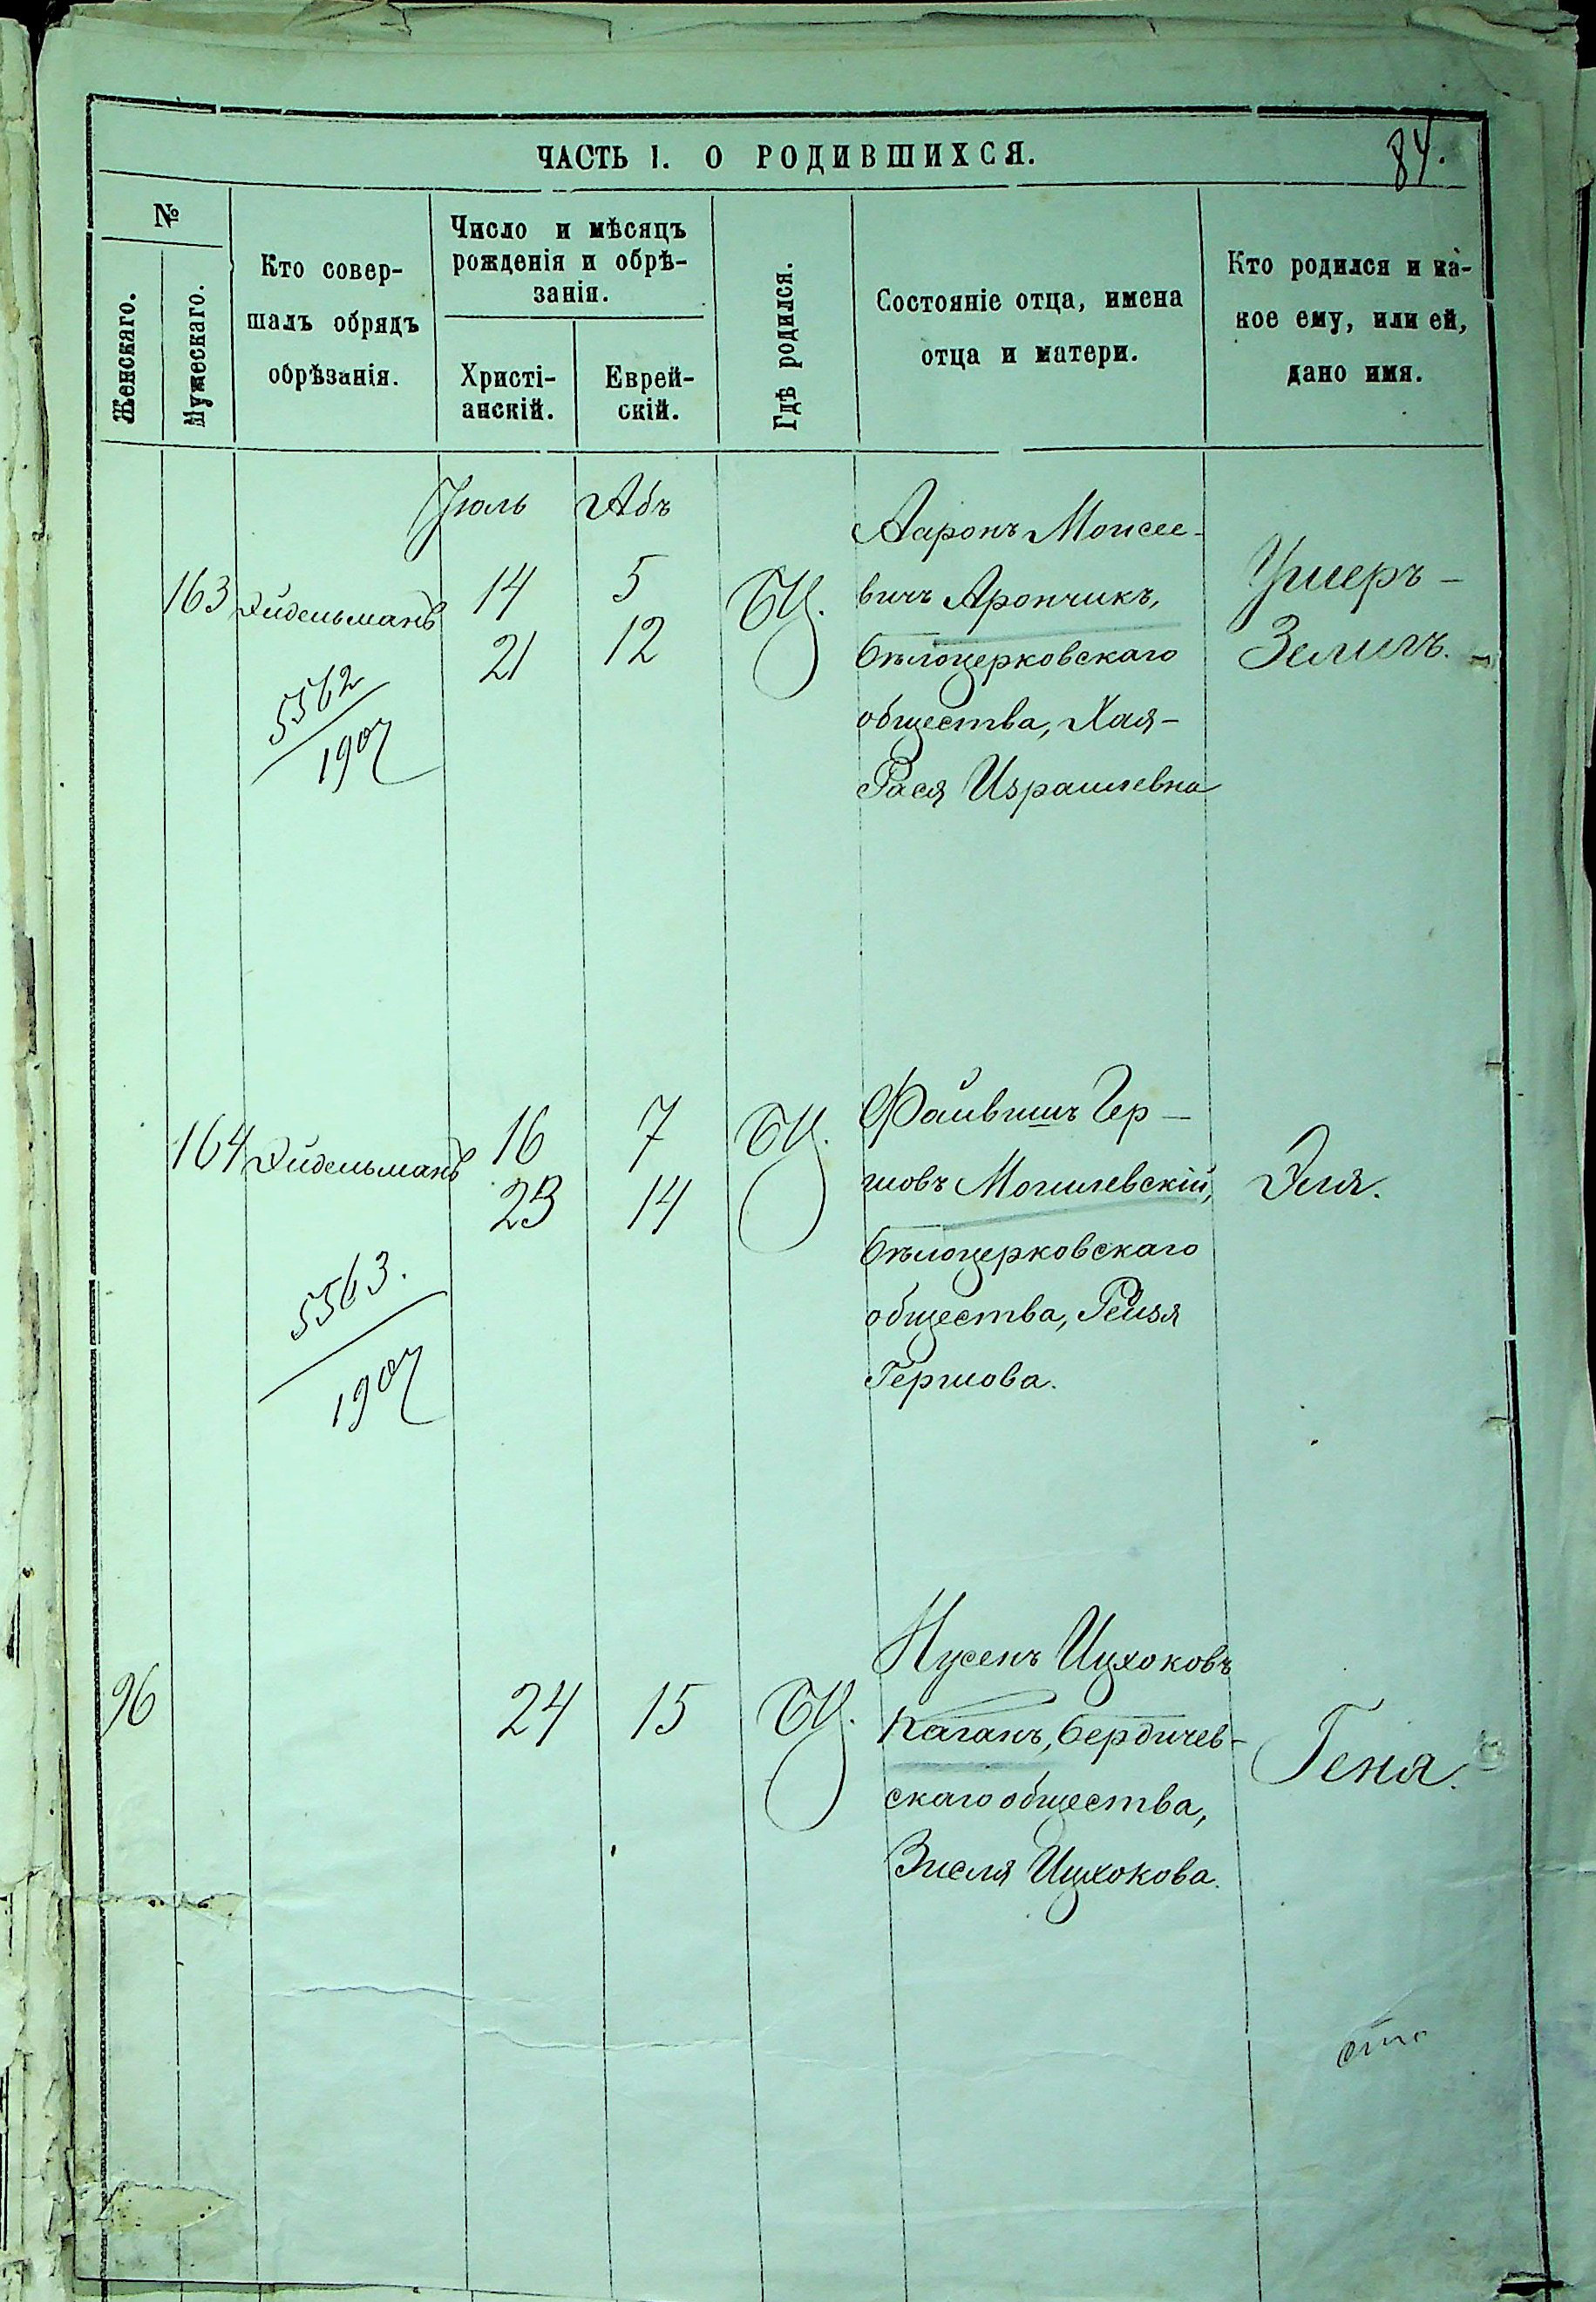 ЧАСТЬ I. О РОДИВШИХСЯ.
84.
№
Женскаго.
Мужескаго.
Кто совер-
шалъ обрядъ
обрѣзанія.
Число и мѣсяцъ
рожденія и обрѣ-
занія.
Христі-
анскій.
Еврей-
скій.
Гдѣ родился.
Состояніе отца, имена
отца и матери.
Кто родился и ка-
кое ему, или ей,
дано имя.
Іюль Абъ
163 Эйдельманъ
14 5
21 12
БЦ.
Ааронъ Моисее-
вичъ Арончикъ,
бѣлоцерковскаго
общества, Хая-
Рася Израилевна
Ушеръ-
Зелигъ.
5562
1907
164 Эйдельманъ
16 7
23 14
БЦ.
Файвишъ Гер-
шовъ Могилевскій,
бѣлоцерковскаго
общества, Рейзя
Гершова.
Эля.
5563.
1907
96
24 15
БЦ.
Нусенъ Ицхоковъ
Каганъ, бердичев-
скаго общества,
Зисля Ицхокова.
Геня.